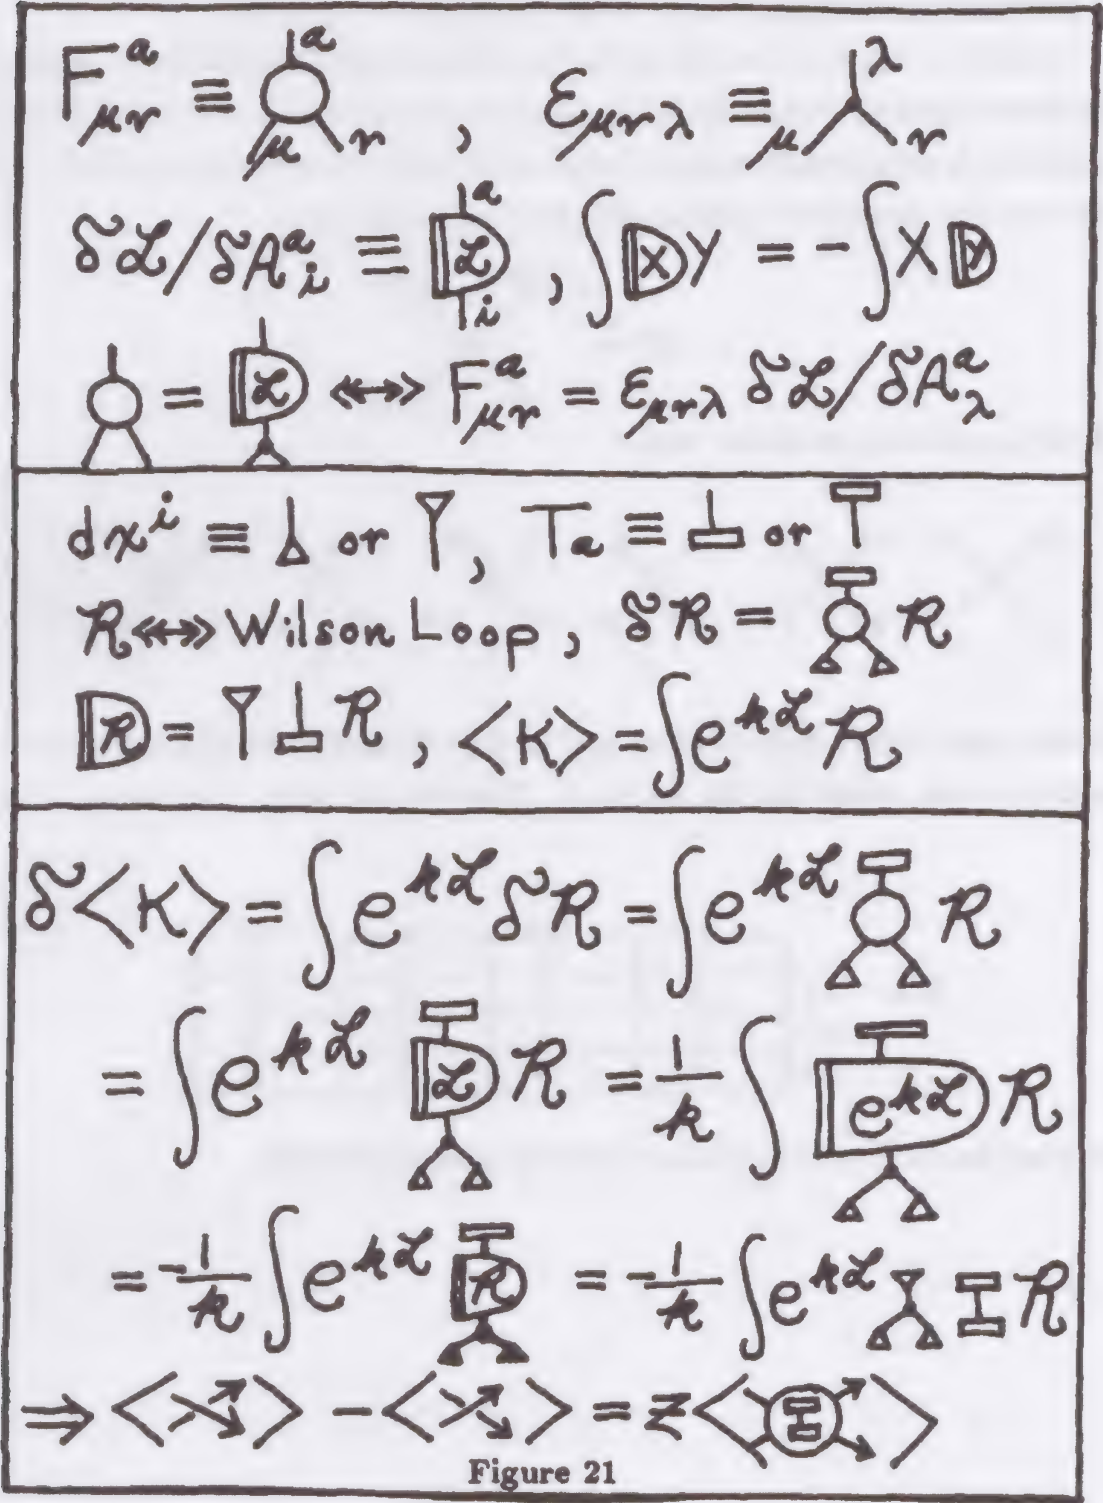 F^a_μν ≡ a μ ν , ε_μνλ ≡ μ λ ν
δℒ/δA^a_i ≡ a ℒ i , ∫ X Y = - ∫ X Y
= ℒ ↔ F^a_μν = ε_μνλ δℒ/δA^a_λ
dx^i ≡ or , T_a ≡ or
R ↔ Wilson Loop, δR = R
R = R , <K> = ∫ e^kℒ R
δ<K> = ∫ e^kℒ δR = ∫ e^kℒ R
= ∫ e^kℒ ℒ R = 1/k ∫ e^kℒ R
= -1/k ∫ e^kℒ R = -1/k ∫ e^kℒ R
⇒ < > - < > = z < >
Figure 21